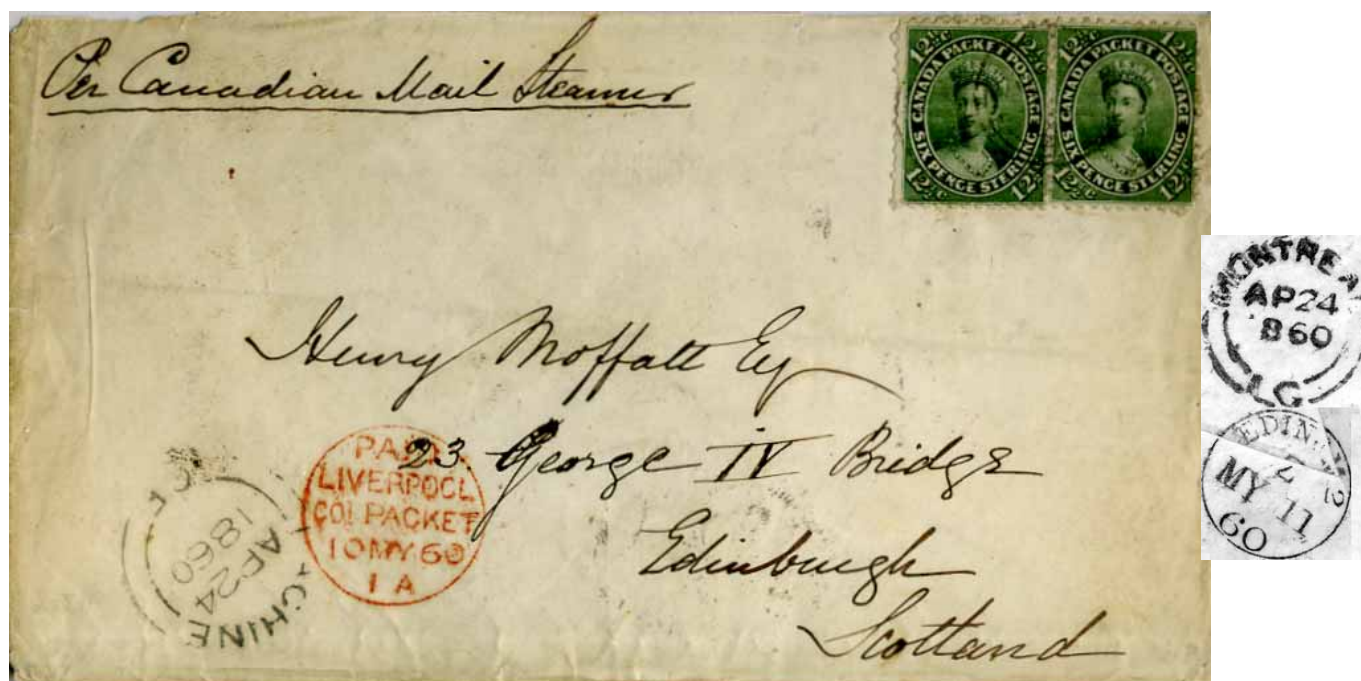 Per Canadian Mail Steamer
12½c 12½c
CANADA PACKET POSTAGE
SIX PENCE STERLING
12½c 12½c
12½c 12½c
CANADA PACKET POSTAGE
SIX PENCE STERLING
12½c 12½c
Henry Moffatt Esq
23 George IV Bridge
Edinburgh
Scotland
PAID
LIVERPOOL
COL PACKET
10 MY 60
1 A
ACHINE
AP 24
1860
MONTREA
AP 24
1860
L.C
EDIN
2
MY 11
60